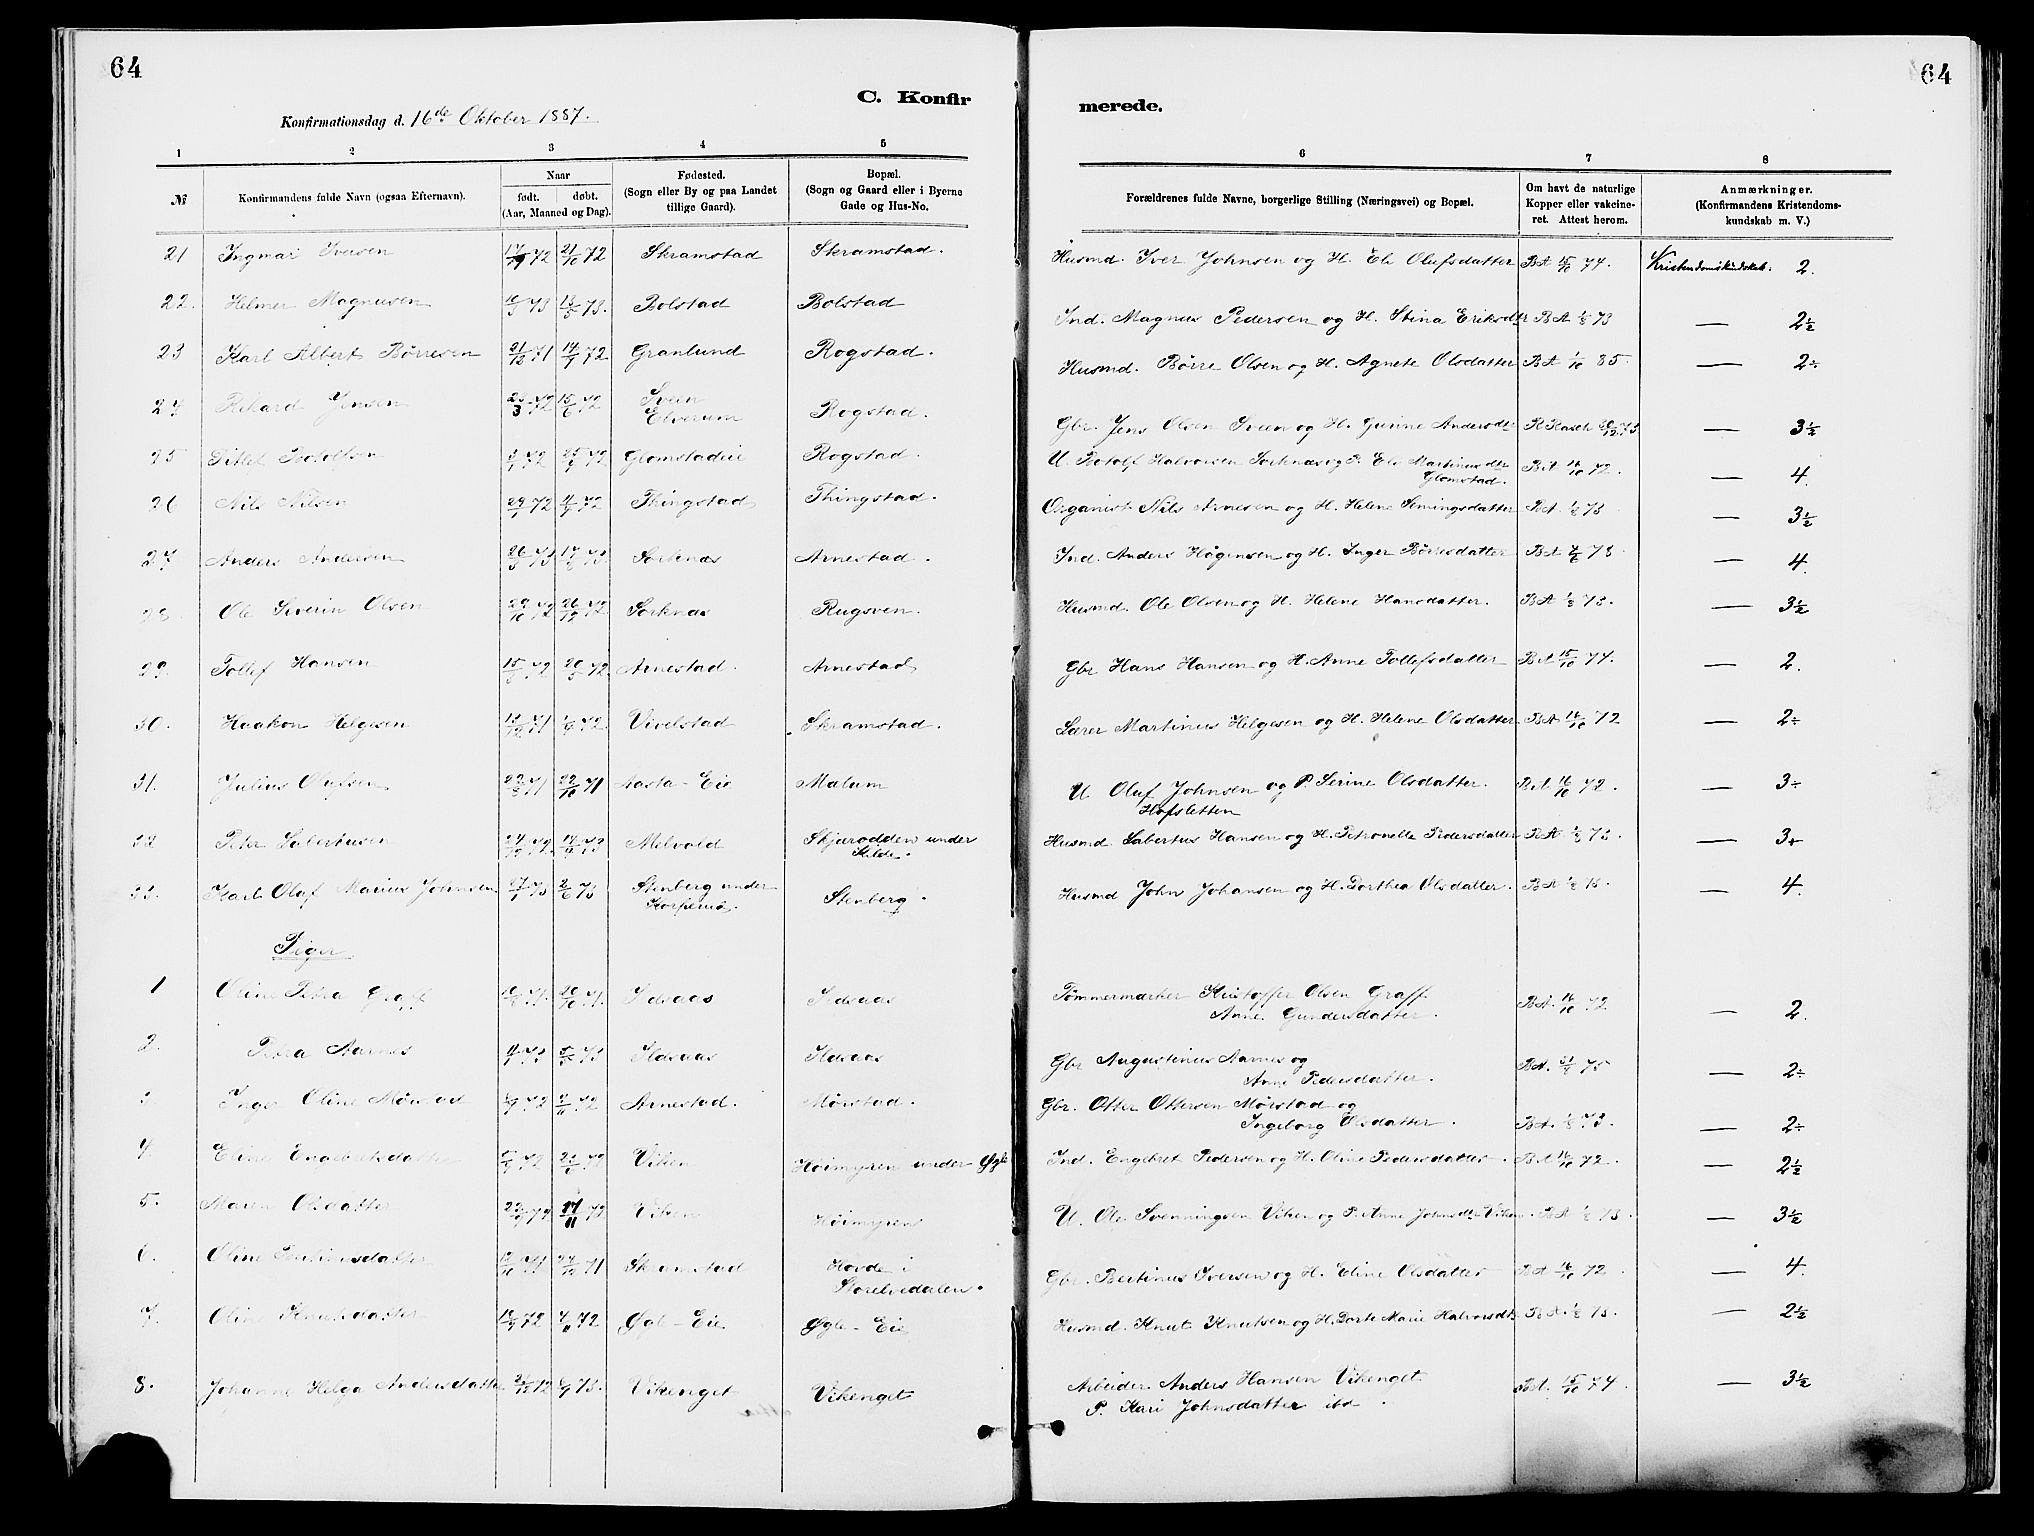 64
64
C. Konfir
merede.
Konfirmationsdag d. 16de Oktober 1887.
1 2 3 4 5
6 7 8
№ Konfirmandens fulde Navn (ogsaa Efternavn). Naar født. døbt. (Aar, Maaned og Dag). Fødested. (Sogn eller By og paa Landet tillige Gaard). Bopæl. (Sogn og Gaard eller i Byerne Gade og Hus-No.
Forældrenes fulde Navne, borgerlige Stilling (Næringsvei) og Bopæl. Om havt de naturlige Kopper eller vakcineret. Attest herom. Anmærkninger. (Konfirmandens Kristendomskundskab m. V.)
21 Ingmar Iversen 72 21/10 72 Skramstad Skramstad. Husmd. Iver Johnsen og H. Eli Olufsdatter BA 15/10 74. Kristendomskundskab. 2.
22. Helmer Magnusen 73 18/5 73. Bolstad Bolstad Ind. Magnus Pedersen og H. Stina Eriksdtr BA 1/8 73 — 2½
23 Karl Albert Børresen 21/12 71 14/7 72 Granlund Rogstad. Husmd. Børre Olsen og H. Agnete Olsdatter BA 1/10 85. — 2÷
24 Rikard Jensen 72 15/6 72 Sveen Elverum Rogstad. Gbr. Jens Olsen Sveen og H. Gurine Andersdtr R Rasch 73 — 3½
25 Ditlef Botolfsen 72 72 Glomstadeie Rogstad. U. Botolf Halvorsen Sorknæs og P. Eli Martinusdtr Glomstad. BA 14/10 72. — 4.
26 Nils Nilsen 29/1 72 72 Thingstad Thingstad. Organist Nils Arnesen og H. Helene Simingsdatter BA 1/8 73 — 3½
27 Anders Andersen 26/3 73 73. Sorknæs Arnestad. Ind. Anders Høgensen og H. Inger Børresdatter BA 73. — 4.
28. Ole Severin Olsen 29/10 72 26/12 72 Sorknæs Rugsven. Husmd. Ole Olsen og H. Helene Hansdatter. BA 1/8 73. — 3½
29. Tollef Hansen 72 72. Arnestad. Arnestad Gbr Hans Hansen og H. Anne Tollefsdatter BA 15/10 74. — 2.
30. Haakon Helgesen 71 72. Vivelstad Skramstad. Lærer Martinus Helgesen og H. Helene Olsdatter BA 14/10 72 — 2÷
31. Julius Olufsen 71 22/10 71 Aasta-Eie Malum U. Oluf Johnsen og P. Serine Olsdatter. Hofsletten BA 72. — 3÷
32 Peter Sabertusen 24/12 72. 73 Melvold Skjærodden under Kilde. Husmd. Sabertus Hansen og H. Petronelle Pedersdatter BA 1/8 73. — 3+
33. Karl Olaf Marius Johnsen 27/1 73 2/6 73 Stenberg under Stenberg. Husmd John Johansen og H. Dorthea Olsdatter. BA 1/8 73. — 4.
Piger
1 Oline Petra Graff 71. 71. Ildsaas Ildsaas Tømmermærker Kristoffer Olsen Graff Anne Gundersdatter. BA. 14/10 72 — 2.
2. Petra Aarnes 73 73 Ildsaas Ildsaas Gbr Augustinus Aarnes og Anne Pedersdatter. BA. 75 — 2÷
3. Inger Oline Mørstad 72 72 Arnestad. Mørstad. Gbr. Otter Ottersen Mørstad og Ingeborg Olsdatter. BA. 1/8 73. — 2÷
4. Eline Engebretsdatter 72 72 Viken Høimyren under Øgle Ind. Engebret Pedersen og H. Oline Pedersdatter. BA 14/10 72. — 2½
5. Maren Olsdatter 72 72 Viken Høimyren U. Ole Svenningsen Viken og P. Anne Johnsdtr Viken. BA 1/8 73. — 3½
6. Oline Bertinusdatter 71 71 Skramstad Hovde i Storelvedalen. Gbr. Bertinus Iversen og H. Eline Olsdatter BA 14/10 72. — 4.
7. Oline Knutsdatter 72 72 Øgle-Eie Øgle-Eie Husmd. Knut Knutsen og H. Dorte Marie Halvorsdtr BA. 1/8 73. — 2½
8. Johanne Helga Andersdatter 72 73. Vikenget Vikenget Arbeider Anders Hansen Vikenget P. Kari Johnsdatter ibd. BA. 15/10 74. — 3½